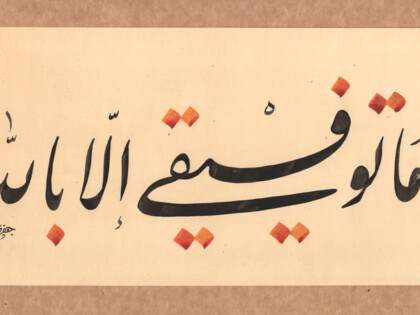 ما توفيقي إلّا بالله